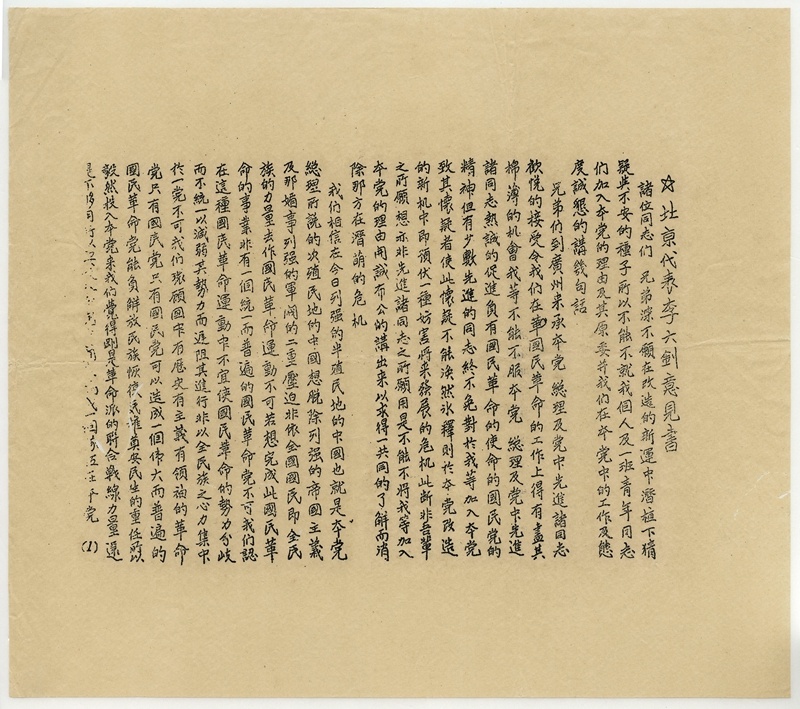 ☆北京代表李大釗意見書
諸位同志們 兄弟深不願在改造的新運中潛植下猜
疑與不安的種子所以不能不就我個人及一班青年同志
們加入本党的理由及其原委并我們在本党中的工作及態
度誠懇的講幾句話
兄弟們到廣州來承本党 總理及党中先進諸同志
歡悦的接受令我們在華國民革命的工作上得有盡其
棉薄的機會我等不能不服本党 總理及党中先進
諸同志熱誠的促進負有國民革命的使命的國民党的
精神但有少數先進的同志終不免對於我等加入本党
致其懷疑者使此懷疑不能渙然氷釋則於本党改造
的新机中即預伏一種妨害將来發展的危机此断非吾輩
之所願想亦非先進諸同志之所願用是不能不將我等加入
本党的理由開誠布公的講出来以求得一共同的了解而消
除那方在潛萌的危机
我們相信在今日列强的半殖民地的中國也就是本党
總理所說的次殖民地的中國想脫除列强的帝國主義
及那媚事列强的軍阀的二重壓迫非依全國國民即全民
族的力量去作國民革命運動不可若想完成此國民革
命的事業非有一個統一而普遍的國民革命党不可我們認
在這種國民革命運動中不宜使國民革命的势力分歧
而不統一以減弱其勢力而遲阻其進行非以全民族之心力集中
於一党不可我們環顧國中有歷史有主義有領袖的革命
党只有國民党只有國民党可以造成一個偉大而普遍的
國民革命党能負解放民族恢復民權奠安民生的重任所以
毅然投入本党来我們覺得剛是革命派的聯合戰線力量還
是不够用所以
(1)